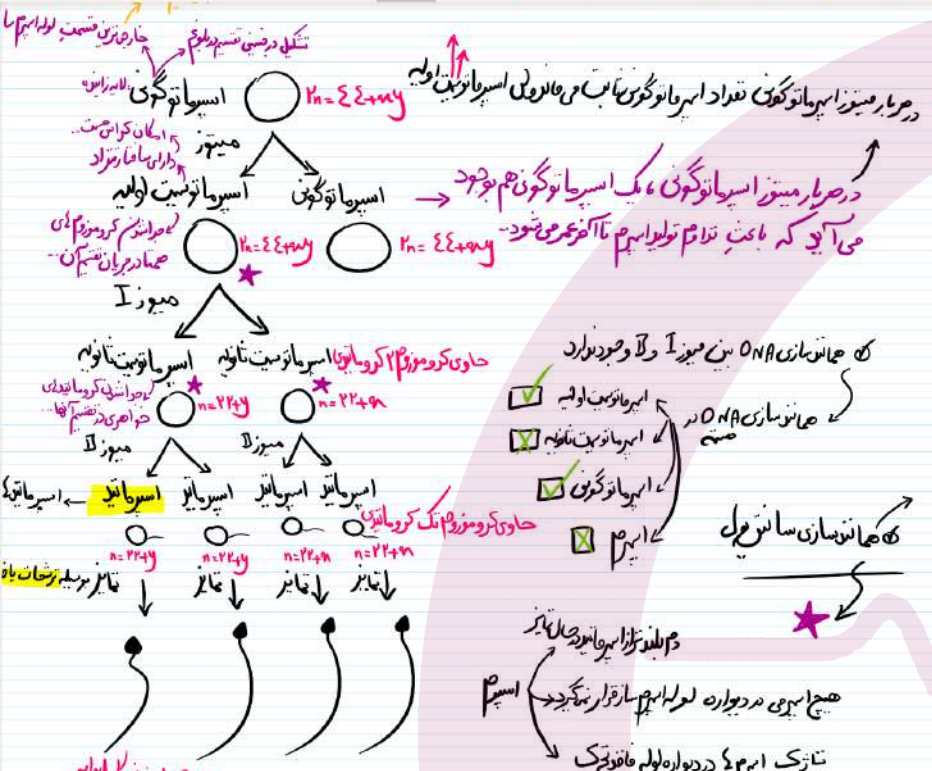 خارجی‌ترین قسمت لوله اسپرم‌ساز
تشکیل در جنینی تقسیم در بلوغ
لایه زاینده
اسپرماتوگونی
2n=44+xy
در هر بار میتوز اسپرماتوگونی تعداد اسپرماتوگونی ثابت می‌ماند ولی اسپرماتوسیت اولیه
میتوز
امکان کراسینگ
دارای ساختار تتراد
اسپرماتوسیت اولیه
اسپرماتوگونی
در هر بار میتوز اسپرماتوگونی، یک اسپرماتوگونی هم بوجود
می‌آید که باعث تداوم تولید اسپرم تا آخر عمر می‌شود...
جدا شدن کروموزوم‌های
همتا در جریان تقسیم آن...
2n=44+xy
2n=44+xy
میوز I
اسپرماتوسیت ثانویه
اسپرماتوسیت ثانویه
حاوی کروموزوم ۲ کروماتیدی
جدا شدن کروماتیدهای
خواهری در تقسیم آنها...
n=22+y
n=22+x
میوز II
میوز II
اسپرماتید
اسپرماتید
اسپرماتید
اسپرماتید
حاوی کروموزوم تک کروماتیدی
n=22+y
n=22+y
n=22+x
n=22+x
تمایز بوسیله ترشحات
تمایز
تمایز
تمایز
همانندسازی DNA بین میوز I و II وجود ندارد
همانندسازی DNA در هسته
اسپرماتوسیت اولیه
اسپرماتوسیت ثانویه
اسپرماتوگونی
اسپرم
همانندسازی سانتریول
اسپرم
دم بلندتر از اسپرماتید در حال تمایز
هیچ اسپرمی در دیواره لوله اسپرم‌ساز قرار نمی‌گیرد
تاژک اسپرم‌ها در دیواره لوله فاقد تحرک